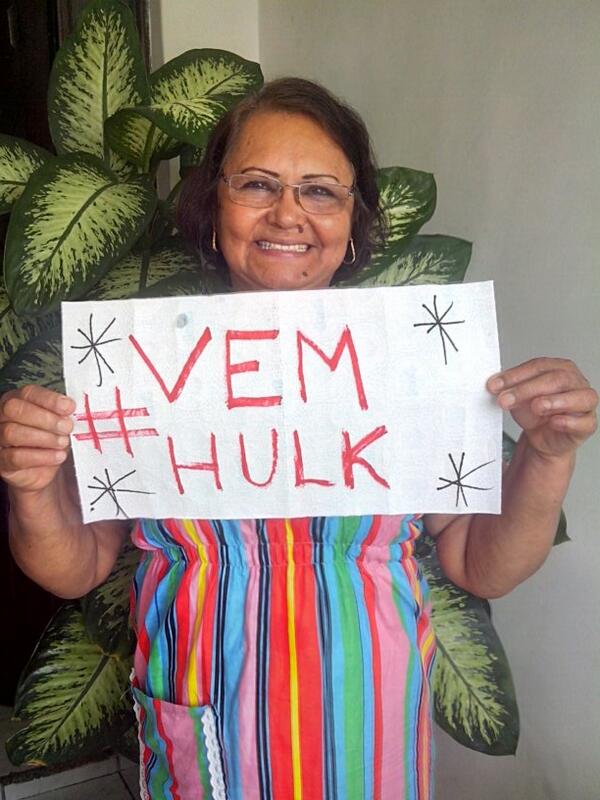 VEM
#HULK